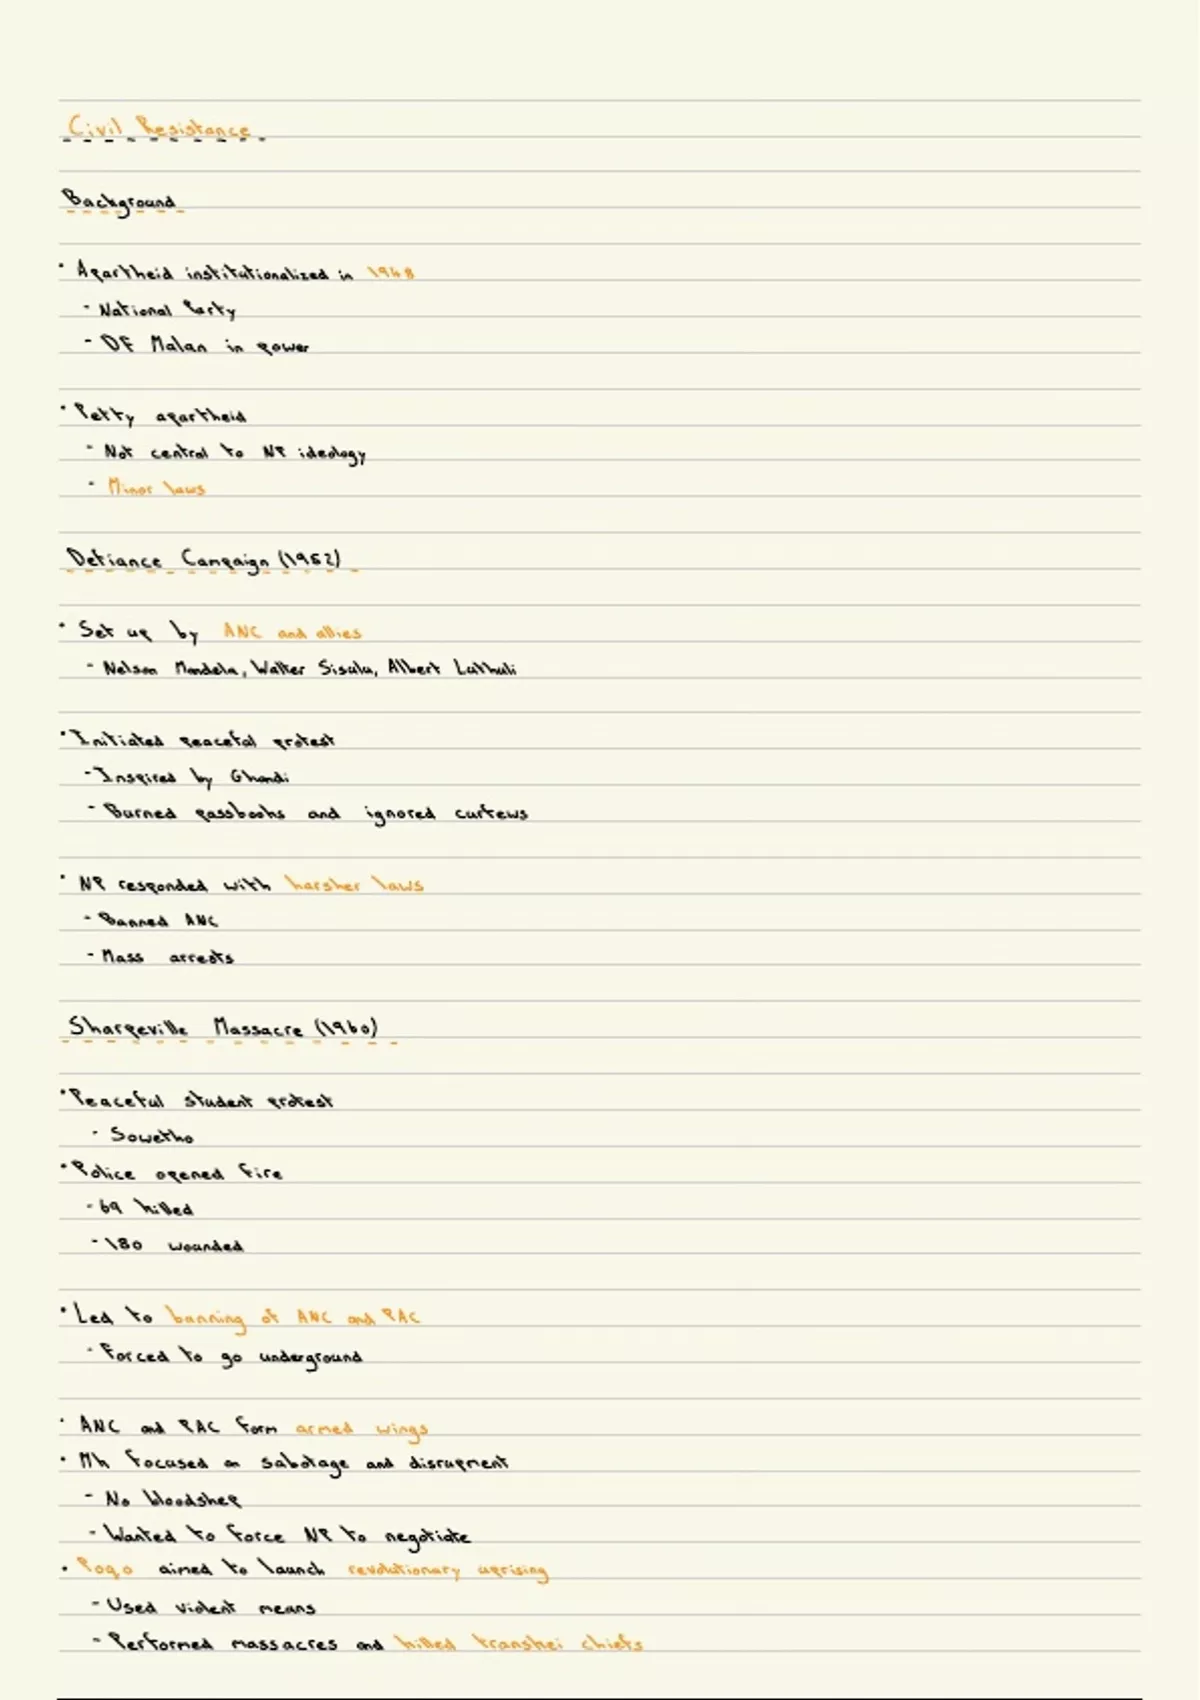 Civil Resistance
Background
• Apartheid institutionalized in 1948
- National Party
- DF Malan in power
• Petty apartheid
- Not central to NP ideology
- Minor laws
Defiance Campaign (1952)
• Set up by ANC and allies
- Nelson Mandela, Walter Sisulu, Albert Luthuli
• Initiated peaceful protest
- Inspired by Ghandi
- Burned passbooks and ignored curfews
• NP responded with harsher laws
- Banned ANC
- Mass arrests
Sharpeville Massacre (1960)
• Peaceful student protest
- Sowetho
• Police opened fire
- 69 killed
- 180 wounded
• Led to banning of ANC and PAC
- Forced to go underground
• ANC and PAC form armed wings
• Mk focused on sabotage and disrupment
- No bloodshep
- Wanted to force NP to negotiate
• Poqo aimed to launch revolutionary uprising
- Used violent means
- Performed massacres and killed transkei chiefs